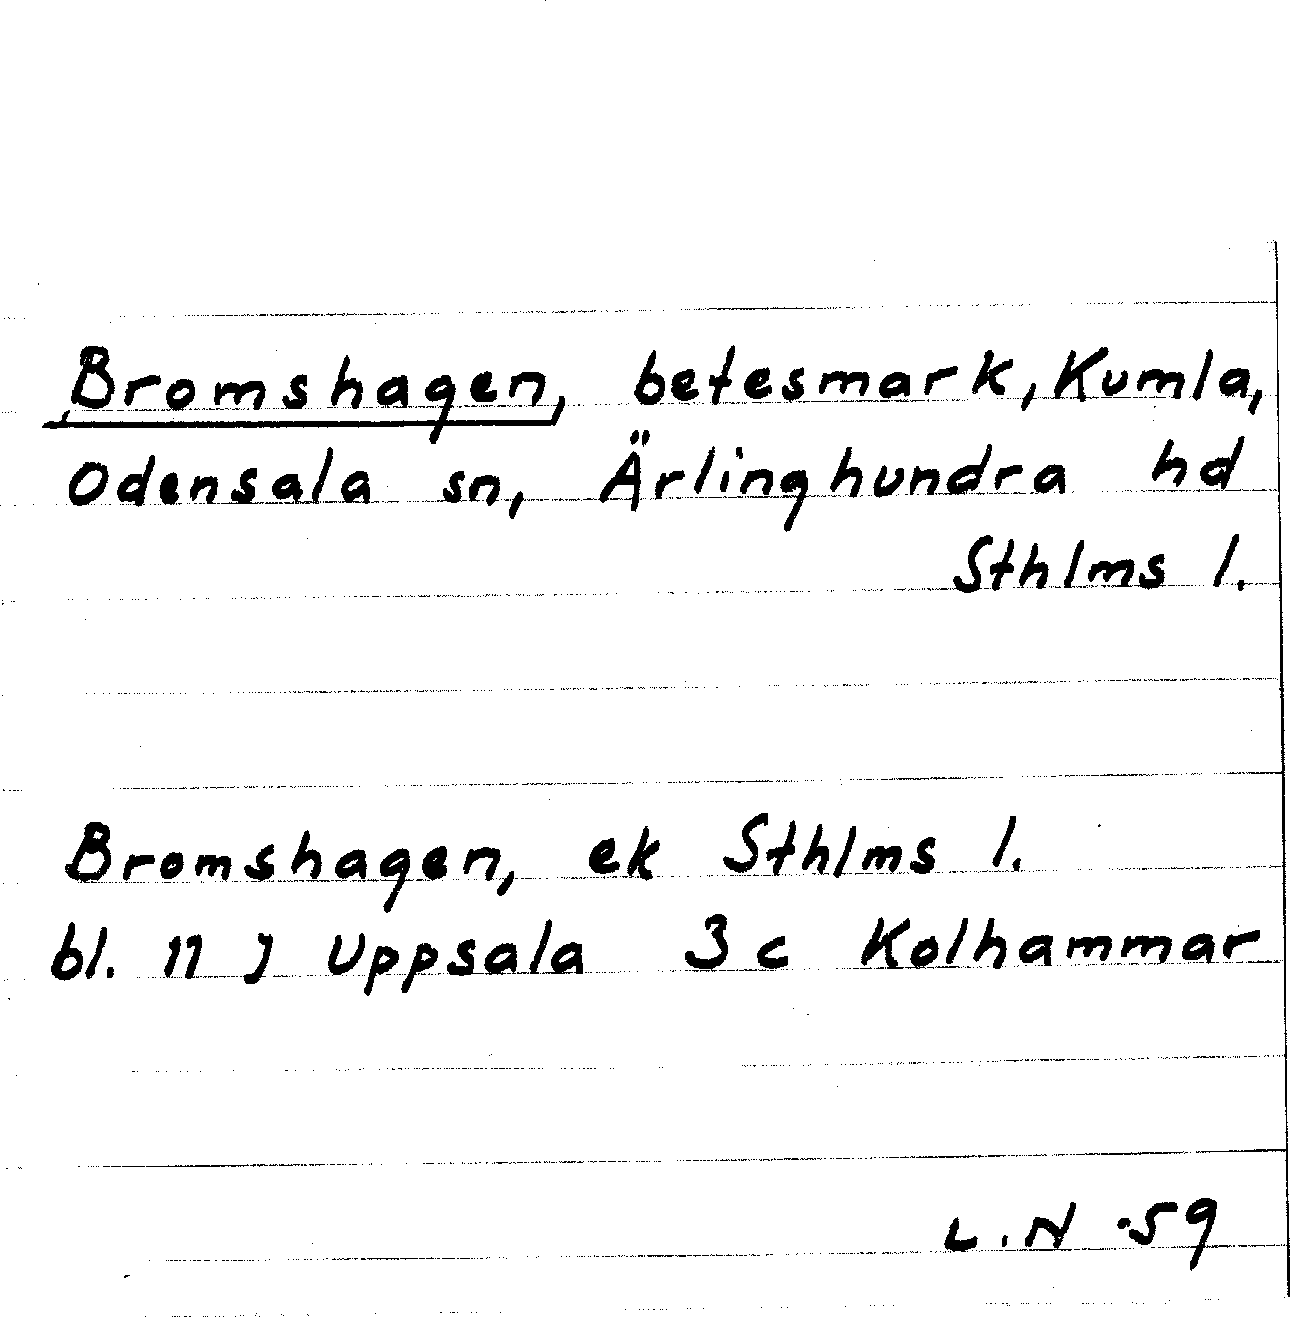 Bromshagen, betesmark, Kumla,
Odensala sn, Ärlinghundra hd
Sthlms l.
Bromshagen, ek Sthlms l.
bl. 11 J Uppsala 3 c Kolhammar
L.N -59